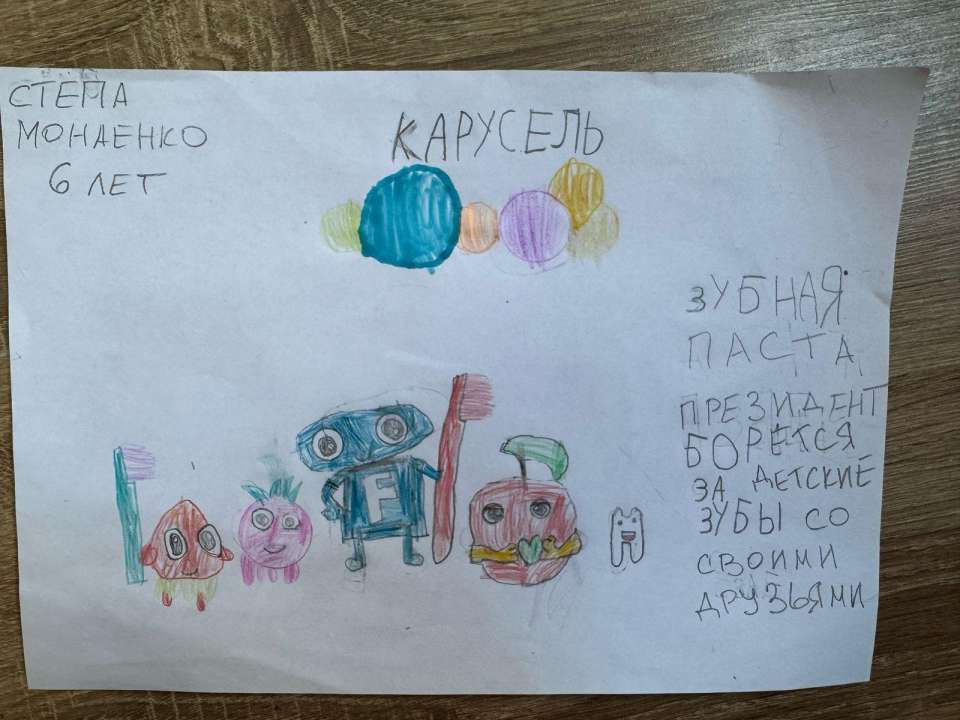 СТЕПА
МОНДЕНКО
6 ЛЕТ
КАРУСЕЛЬ
ЗУБНАЯ
ПАСТА
ПРЕЗИДЕНТ
БОРЕТСЯ
ЗА ДЕТСКИЕ
ЗУБЫ СО
СВОИМИ
ДРУЗЬЯМИ
F